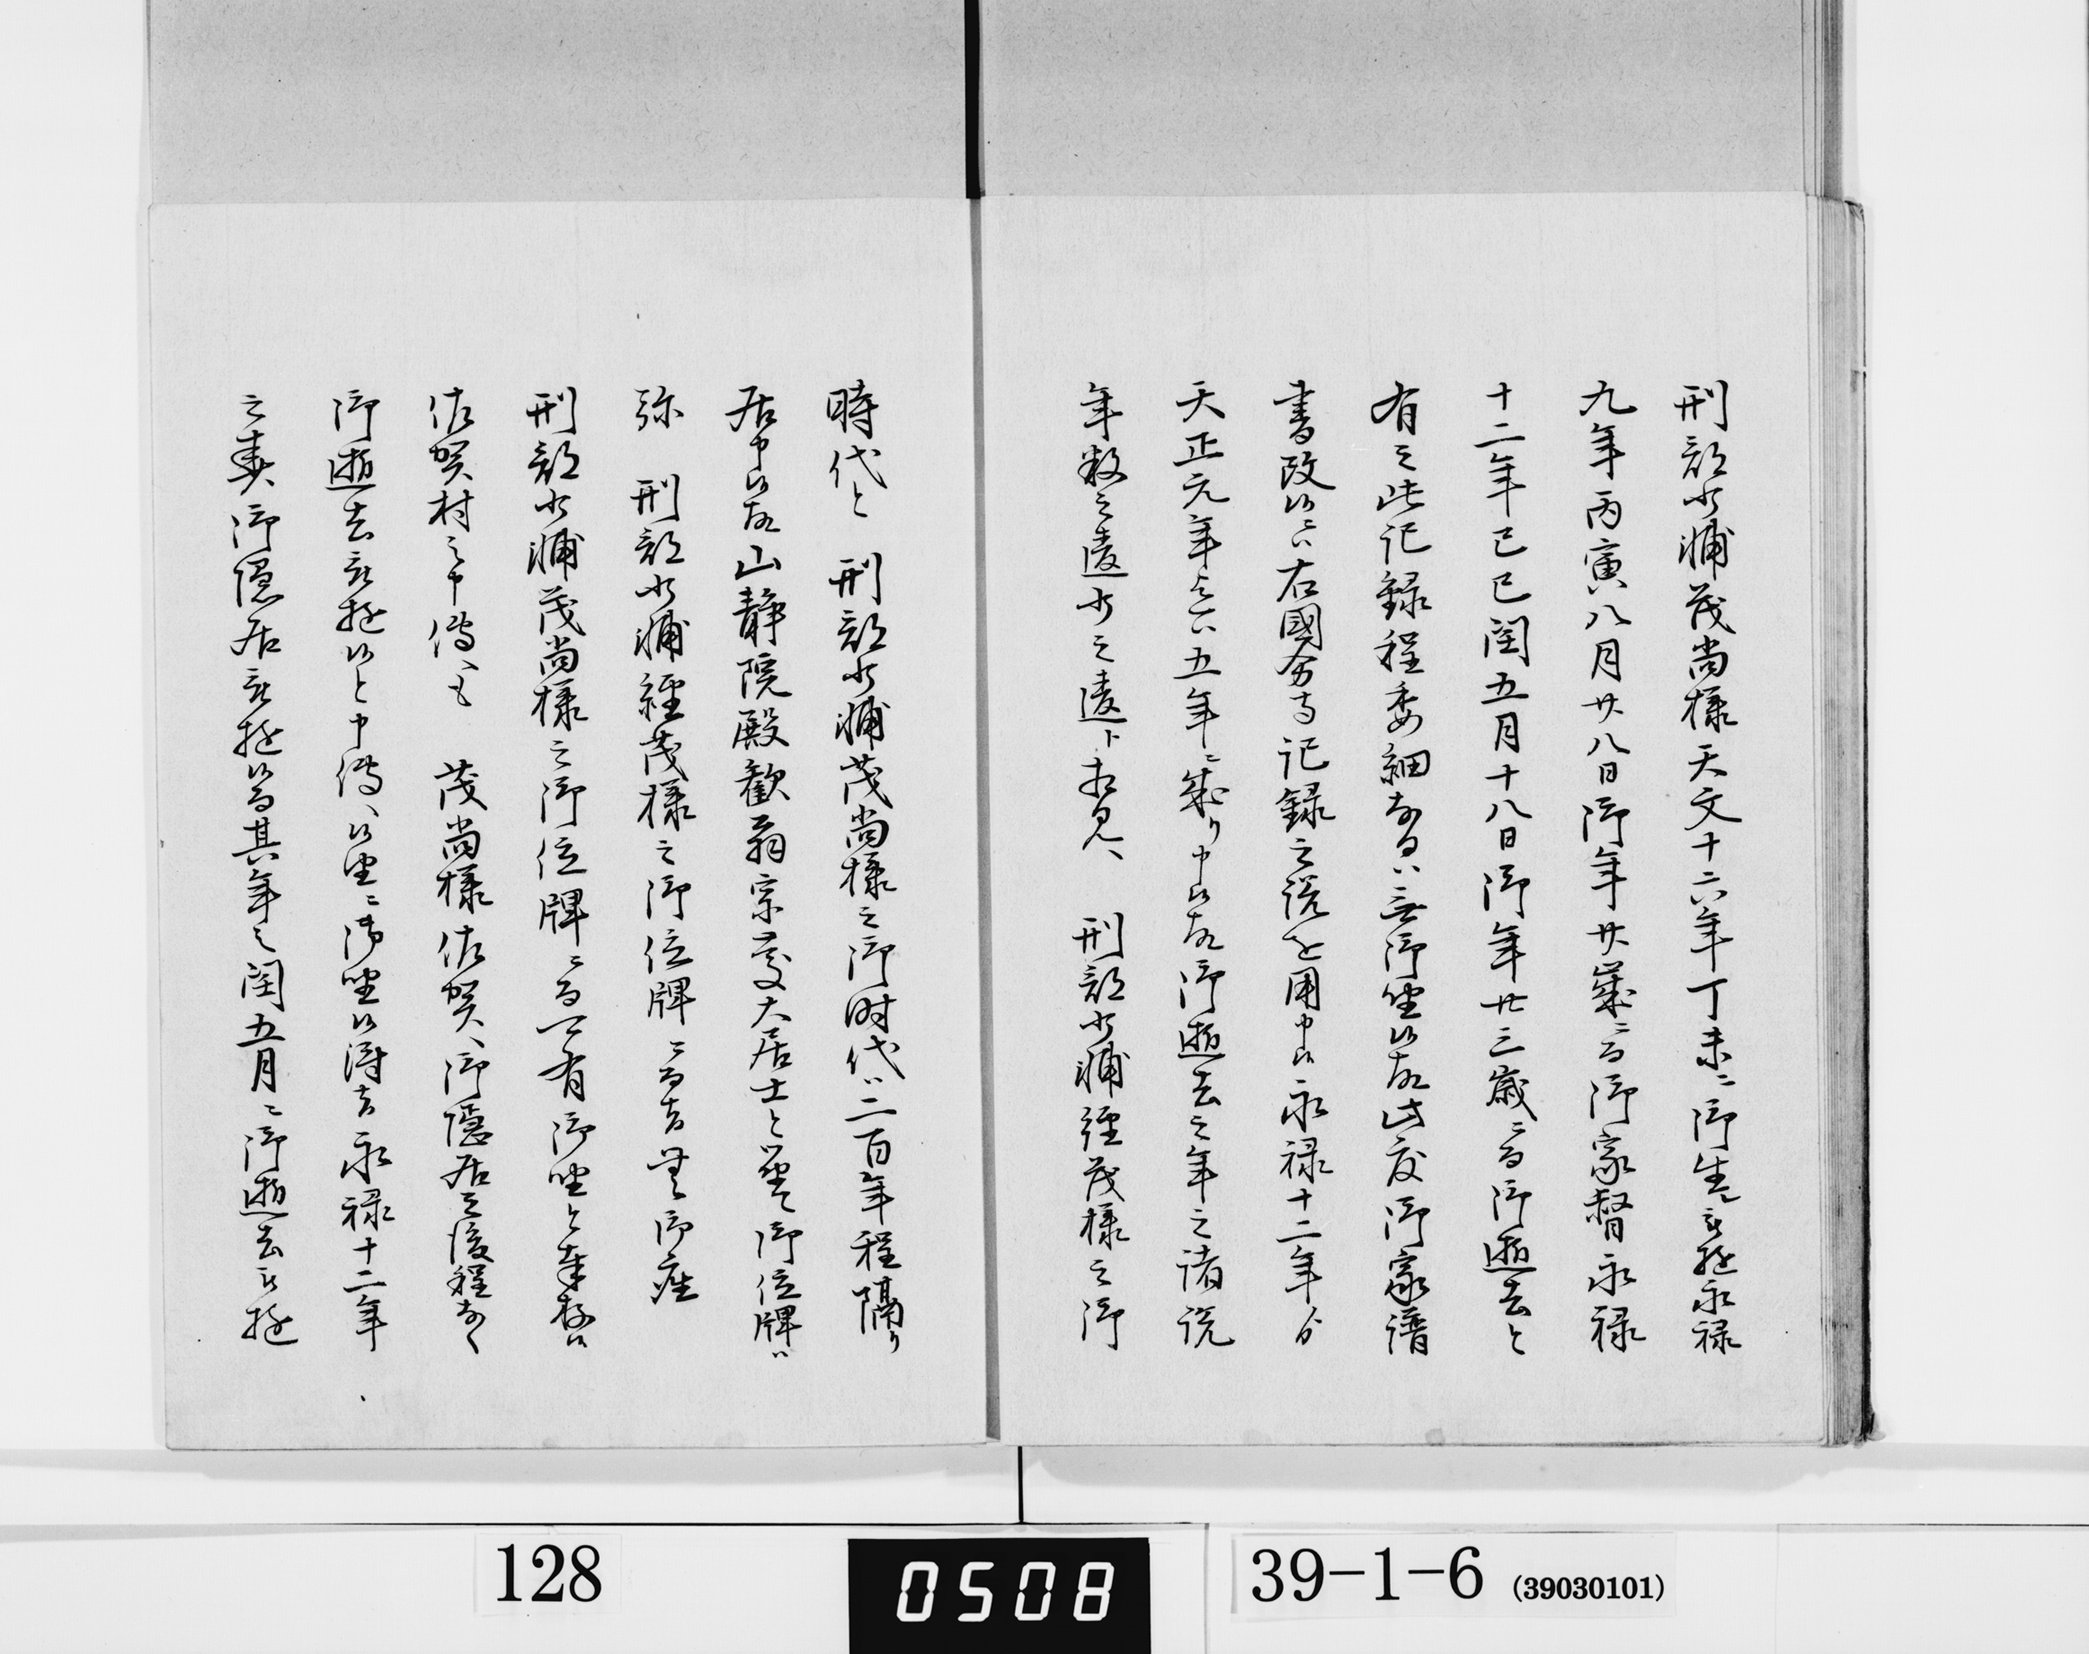 刑部少輔茂尚様天文十六年丁未ニ御生被遊永禄
九年丙寅八月廿八日御年廿歳ニ而御家督永禄
十二年己巳閏五月十八日御年廿三歳ニ而御逝去と
有之此記録程委細なるハ無御坐候故此度御家譜
書改候ニハ右國分寺記録之説を用申候永禄十二年ゟ
天正元年迠ハ五年ニ成り申候故御逝去之年之諸説
年数之違少之違ト相見ヘ 刑部少輔經茂様之御
時代と 刑部少輔茂尚様之御時代ハ二百年程隔り
居申候故山静院殿歓翁宗慶大居士と築候御位牌ハ
弥 刑部少輔經茂様之御位牌ニ而者無御座
刑部少輔茂尚様之御位牌ニ而可有御坐と奉存候
佐賀村之申傳ヘも 茂尚様佐賀ヘ御隠居之後程なく
御逝去被遊候と申傳ヘ候由ニ御坐候得者永禄十二年
之春御隠居被遊候而其年之閏五月ニ御逝去被遊
128
0508
39-1-6 (39030101)